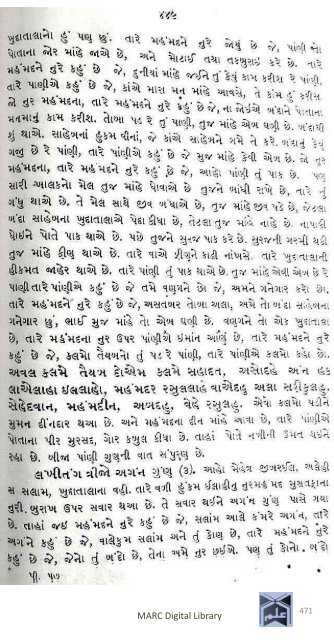 ૪૪૯
ખુદાતાલાનો હું પણ છું. તારે મહંમદને નુરે જોયું છે જે, પાંણી તો
પોતાના જોર માંહે જાએ છે, અને મોટાઈ તથા તકબુરાઇ કરે છે. તારે
મહંમદને નુરે કહું છે જે, દુનીયાં માંહે જઈને તું કેવું કામ કરીશ રે પાંણી.
તારે પાંણીએ કહું છે જે, કાંએ મારા મન માંહે આવશે, તે કામ હું કરીસ
જો નુર મહંમદના, તારે મહંમદને નુરે કહું છે જે, ના જોઈએ બંદાને પોતાના
મનમાનું કામ કરીશ. તોબા પડ રે તું પાણી, તુજ માંહે એબ ઘણી છે. બંદાથી
શું થાએ. સાહેબનાં હુકમ વીનાં, જે કાંએ સાહેબને ગમે તે કરે. બંદાનું કેવું
ગજુ છે રે પાંણી, તારે પાંણીએ કહું છે જે મુજ માંહે કેવી એબ છે. જો નુર
મહંમદના, તારે મહંમદને નુરે કહું છે જે, આહો પાંણી તું પાક છે. પણ
સારી આલકનો મેલ તુજ માંહે ધોવાએ છે તુજને બાંધી રાખે છે, તારે તું
ગંધુ થાએ છે. તે મેલ સાથે જીવ બંધાએ છે, તુજ માંહે જીવ પડે છે, જેટલા
બંદા સાહેબના ખુદાતાલાએ પેદા કીધા છે, તેટલા તુજ માંહે નાહે છે. નાપાકી
ધોઇને પોતે પાક થાએ છે. પછે તુજને સુરજ પાક કરે છે. સુરજની ગરમી થકી
તુજ માંહે ફીણ થાએ છે. તારે વાએ ફીણને કાઢી નાંખસે. તારે ખુદાતાલાની
હીકમત જાહેર થાએ છે. તારે પાંણી તું પાક થાએ છે. તુજ માંહે એવી એબ છે રે
પાંણી તારે પાંણીએ કહું છે જે તમે વણુગને છો જે, અમને ગનેગાર કરો છો.
તારે મહંમદને નુરે કહું છે જે, અસતંબર તોબા અલા, અમે તો બંદા સાહેબના
ગનેગાર છું, ભાઈ મુજ માંહે તો એબ ઘણી છે. વણુગને તો એક ખુદાતાલા
છે, તારે મહંમદના નુર ઉપર પાંણીએ ઈમાંન આંણું છે, તારે મહંમદને નુરે
કહું છે જે, કલમો તૈયબનો તું પડ રે પાંણી, તારે પાંણીએ કલમો કહો છો.
અવલ કલમે તૈયબ દોએમ કલમે સહાદત, અસોહદો અંન હક
લાએલાહા ઇલલાહો, મહંમદર રસુલલાહ વાએદાહુ અલા સરીકુલહુ,
સેહેદવાન, મહંમદીન, અબદહુ, વેહે રસુલહુ. એવો કલમો પડીને
મુમન દીનદાર થઆ છે. અને મહંમદના દીન માંહે આવા છે, તારે પાંણીએ
પોતાના પીર મુરસદ, ગોર કબુલ કીધા છે. તાહાં પોતે નબીની ઉમત થઈને
રહા છે. બીજા પાંણી ગુણની વાત સંપુરણ છે.
લખીતંગ ત્રીજો અગંન ગુંણ (૩). આહો મેહેત્ર જીબરઈલ, અલેહી
સ સલામ, ખુદાતાલાના વહી. તારે વળી હુકમ ઈલાહીનું નુરમહંમદ મુસતફાના
નુરી, ભુરાખ ઉપર સવાર થઆ છે. તે સવાર થઈને અગંન ગુંણ પાસે ગયા
છે. તાહાં જઇ મહંમદને નુરે કહું છે જે, સલાંમ આલે કંમરે અગંન, તારે
અગંને કહું છે જે, વાલેકુમ સલાંમ અને તું કોણ છે, તારે મહંમદને નુરે
કહું છે જે, જેનો તું બંદો છે, તેના અમે નુર છઈએ. પણ તું કોનો. બંદો
પી. ૫૭
MARC Digital Library
471